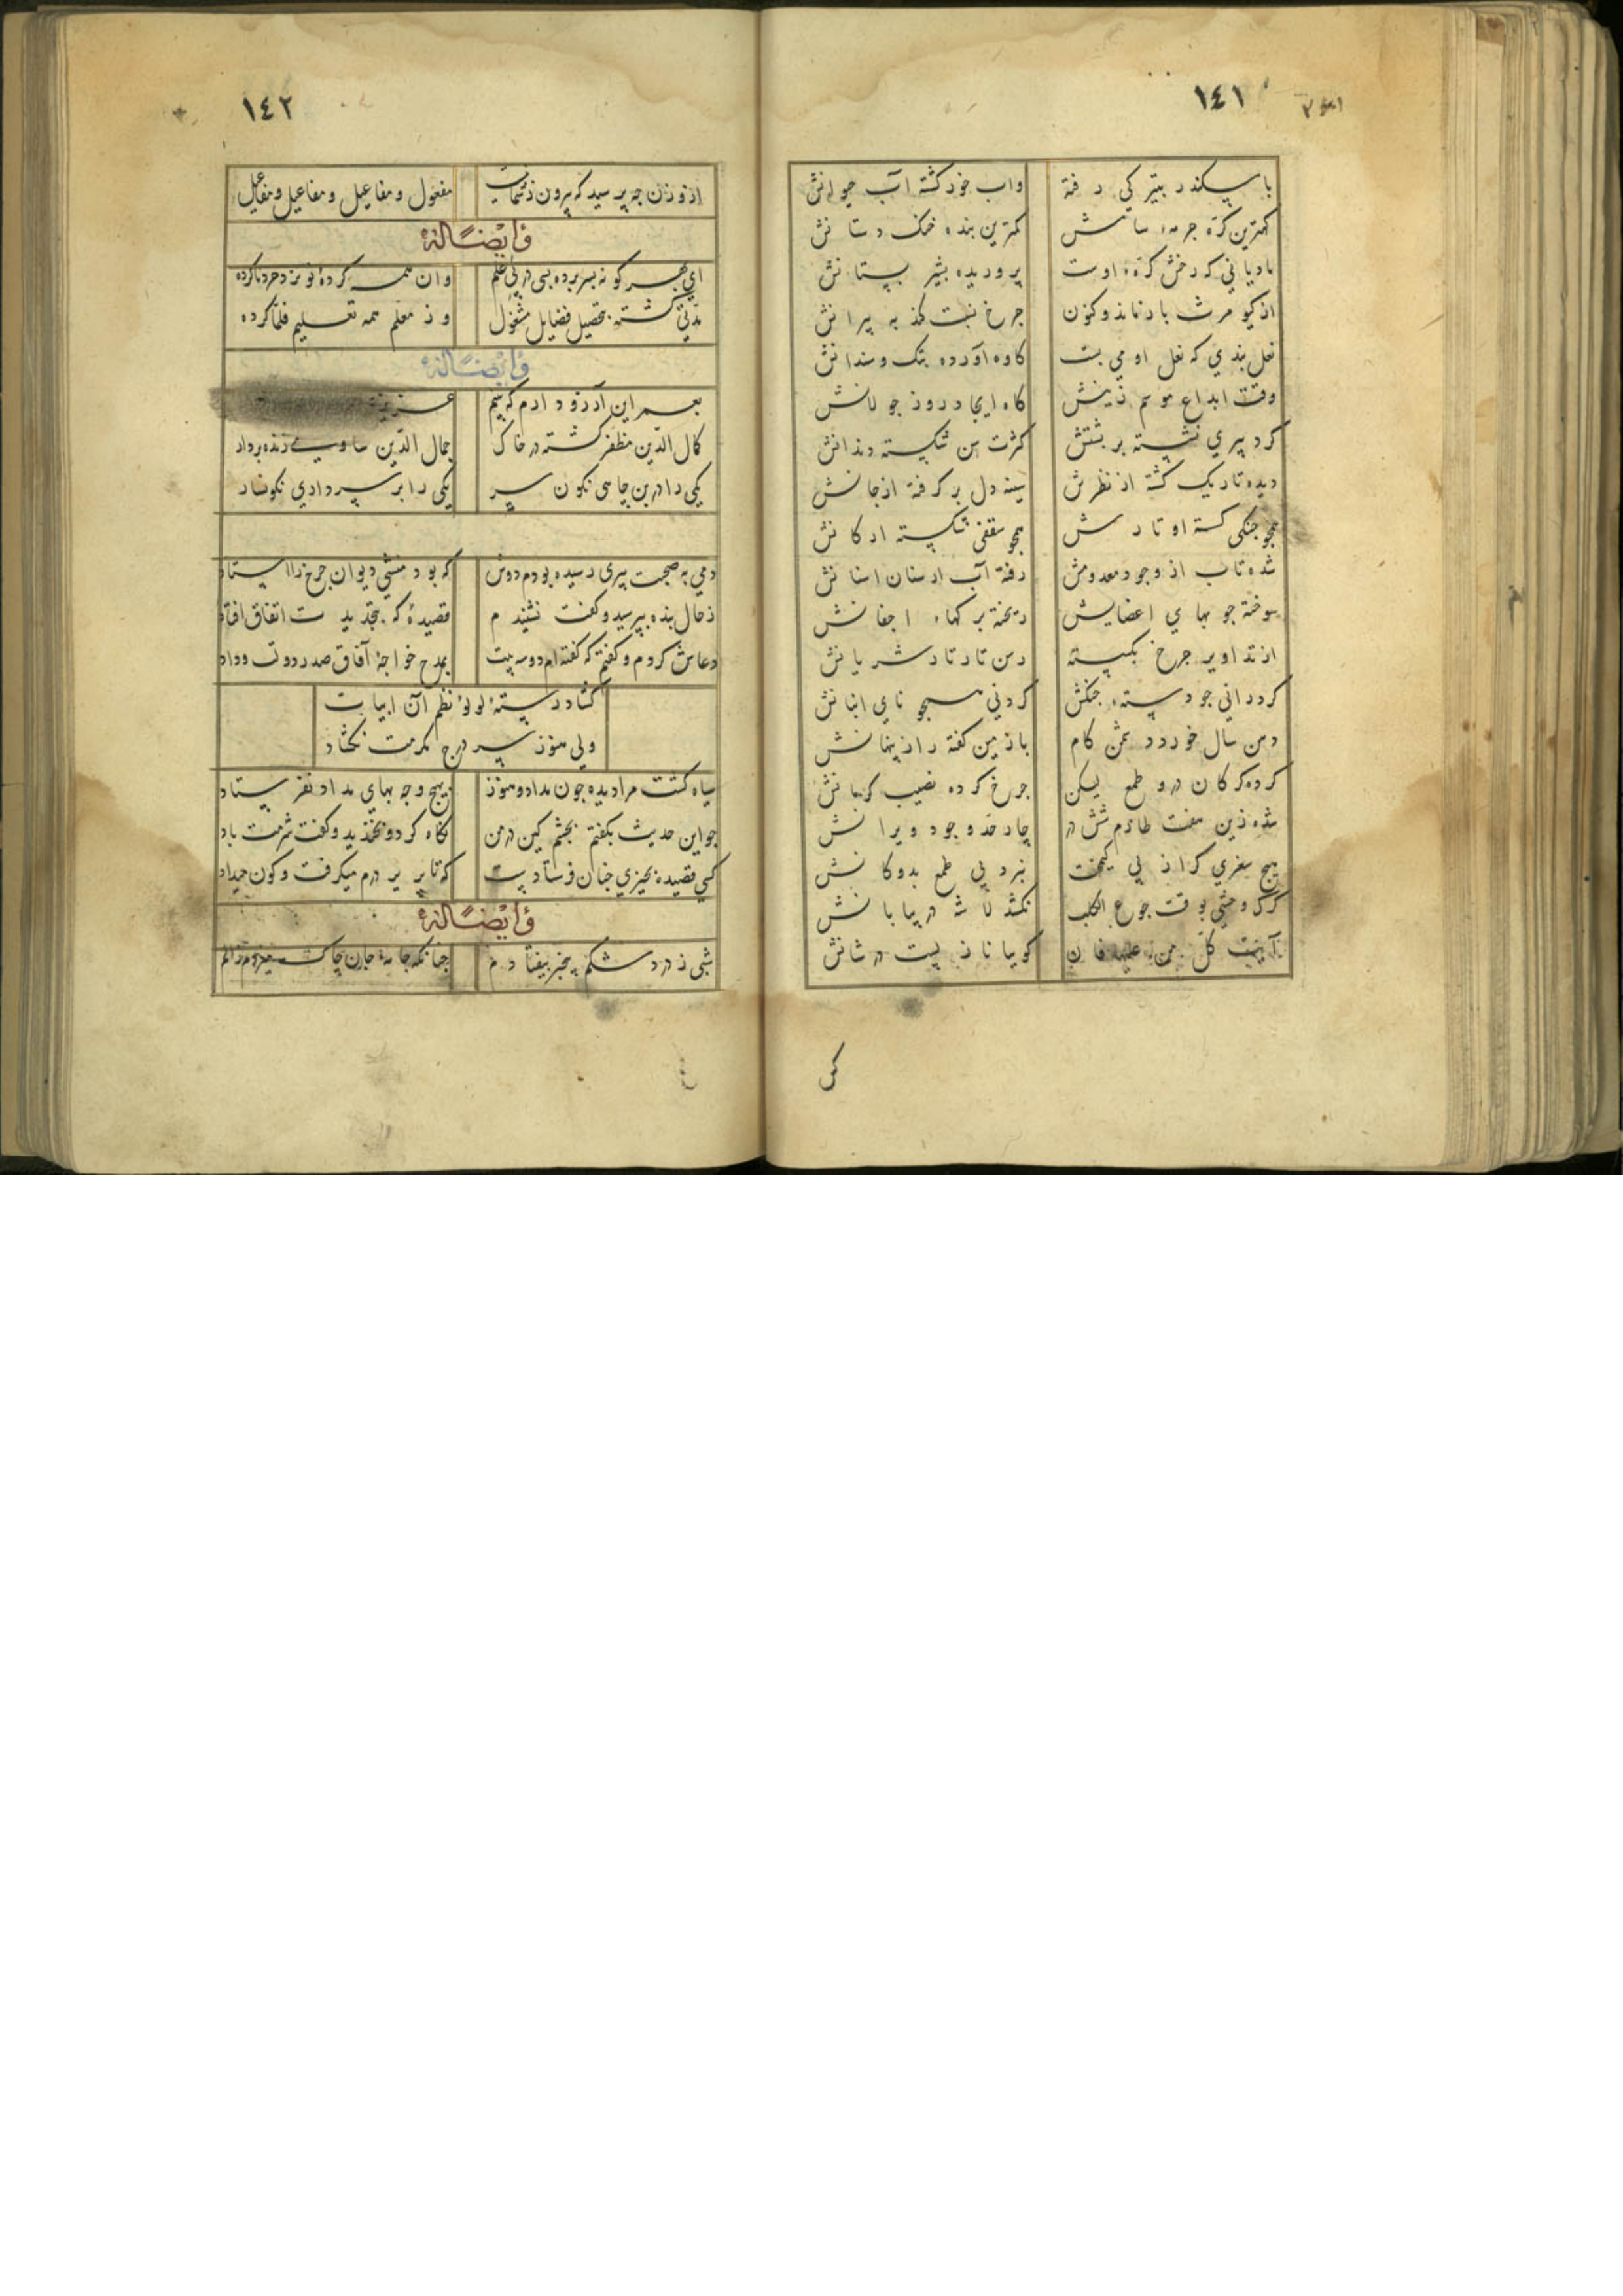 ١٤١
با سکندر بتیر کی رفته
واب خورد کشته آب حیوانش
کمترین بنده خنک دستانش
مادیانی که رخش کره اوست
پروریده بشیر پستانش
از کیومرث یاد نامد و کنون
چرخ نسبت کند به پیرانش
نعل بندی که نعل او می بست
کاوه آورده بتک وسندانش
وقت ابداع موسم زینش
کاه ایجاد روز جولانش
کرد پیری نشسته بر پشتش
کثرت سن شکسته دندانش
دیده تاریک کشته از نظرش
سینه دل بر کرفته از جانش
همجو جنکی کسسته اوتارش
همجو سقفی شکسته ارکانش
شده تاب از وجود معدومش
رفته آب از سنان اسنانش
سوخته جوبهای اعضایش
ریخته برکهاء اجفانش
از تداویر جرخ بکسسته
رسن تار تار شریانش
کردرانی جو دسته جنکش
کردنی همجو نای انبانش
در من سال خورد دشمن کام
باز من کفته راز پنهانش
کرده کرکان درو طمع لیکن
جرخ کرده نصیب کرمانش
شده زین هفت طارم شش در
چار حد وجود ویرانش
هیج سغری کر از پی کیمخت
نبرد بی طمع بدوکانش
کرک وحشی بوقت جوع الکلب
نکشد لاشه در بیابانش
آیت کل من علیها فان
کوییا نازلیست در شانش
١٤٢
ازو زن جه پرسید که بیرون ز
مفعول و مفاعیل و مفاعیل و مفاعیل
وایضًا له
ای بسر کو نه بسر برده بسی در پی علم
وان همه کرده
مدتی کشته بتحصیل فضایل مشغول
وز معلم همه تعلیم فلما کرده
وایضًا له
بعمر این آرزو دارم که بینم
کمال الدین مظفر کشته در خاک
جمال الدین ساوی زنده بردار
یکی را در بن چاهی نکون سر
یکی را بر سر داری نکونسار
دمی به صحبت پیری رسیده بودم دوش
که بود منشی دیوان جرخ را استاد
ز حال بنده بپرسید و کفت نشنیدم
قصیدهٔ که بتجدیدت اتفاق افتاد
دعاش کردم و کفتم که کفته ام دوسه بیت
بمدح خواجهٔ آفاق صدر دولت و داد
کشاد رستهٔ لولؤ نظم آن ابیات
ولی هنوز سر درج مکرمت نکشاد
سیاه کشت مرا دیده جون مداد و هنوز
بهیج وجه بهای مداد نفرستاد
جو این حدیث بکفتم بخشم کین در من
نکاه کرد و بخندید و کفت شرمت باد
کسی قصیده بحیزی جنان فرستادست
که تا بریر درم میکرفت و کون میداد
وایضًا له
شبی ز درد شکم بیخبر بیفتادم
جنانکه جامهٔ جان چاک